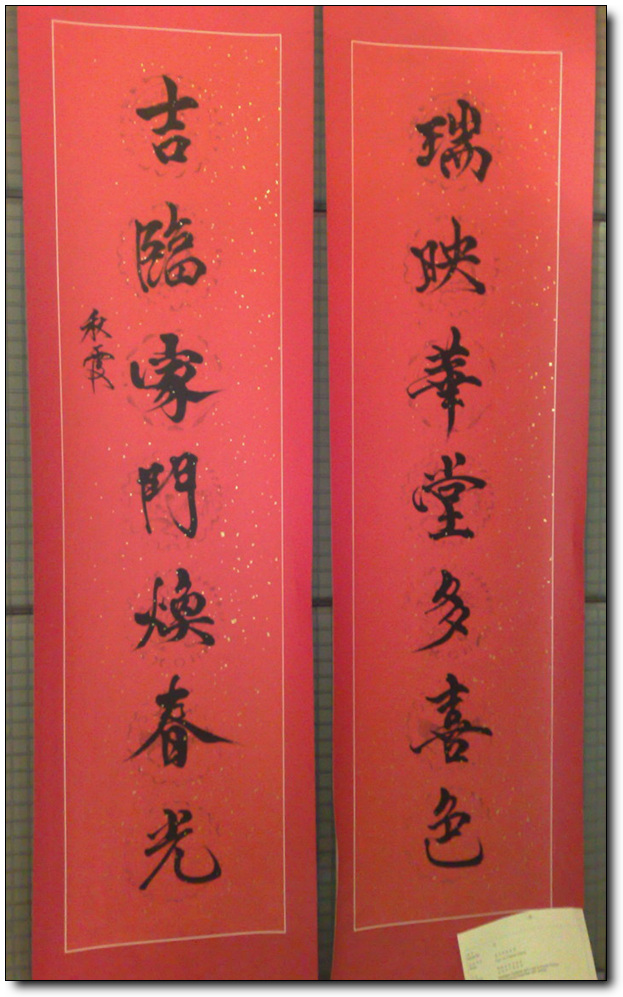 瑞映華堂多喜色
吉臨家門煥春光
秋霞